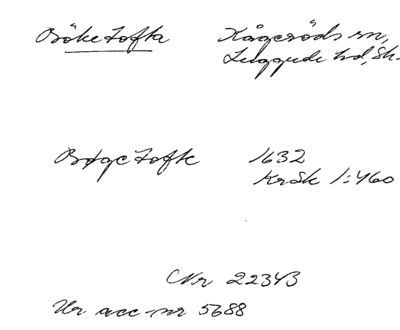 Böketofta Kågeröds sn,
Luggude hd, Sk.
Bøgetofte 1632
KrSk 1:460
Nr 22343
Ur acc-nr 5688